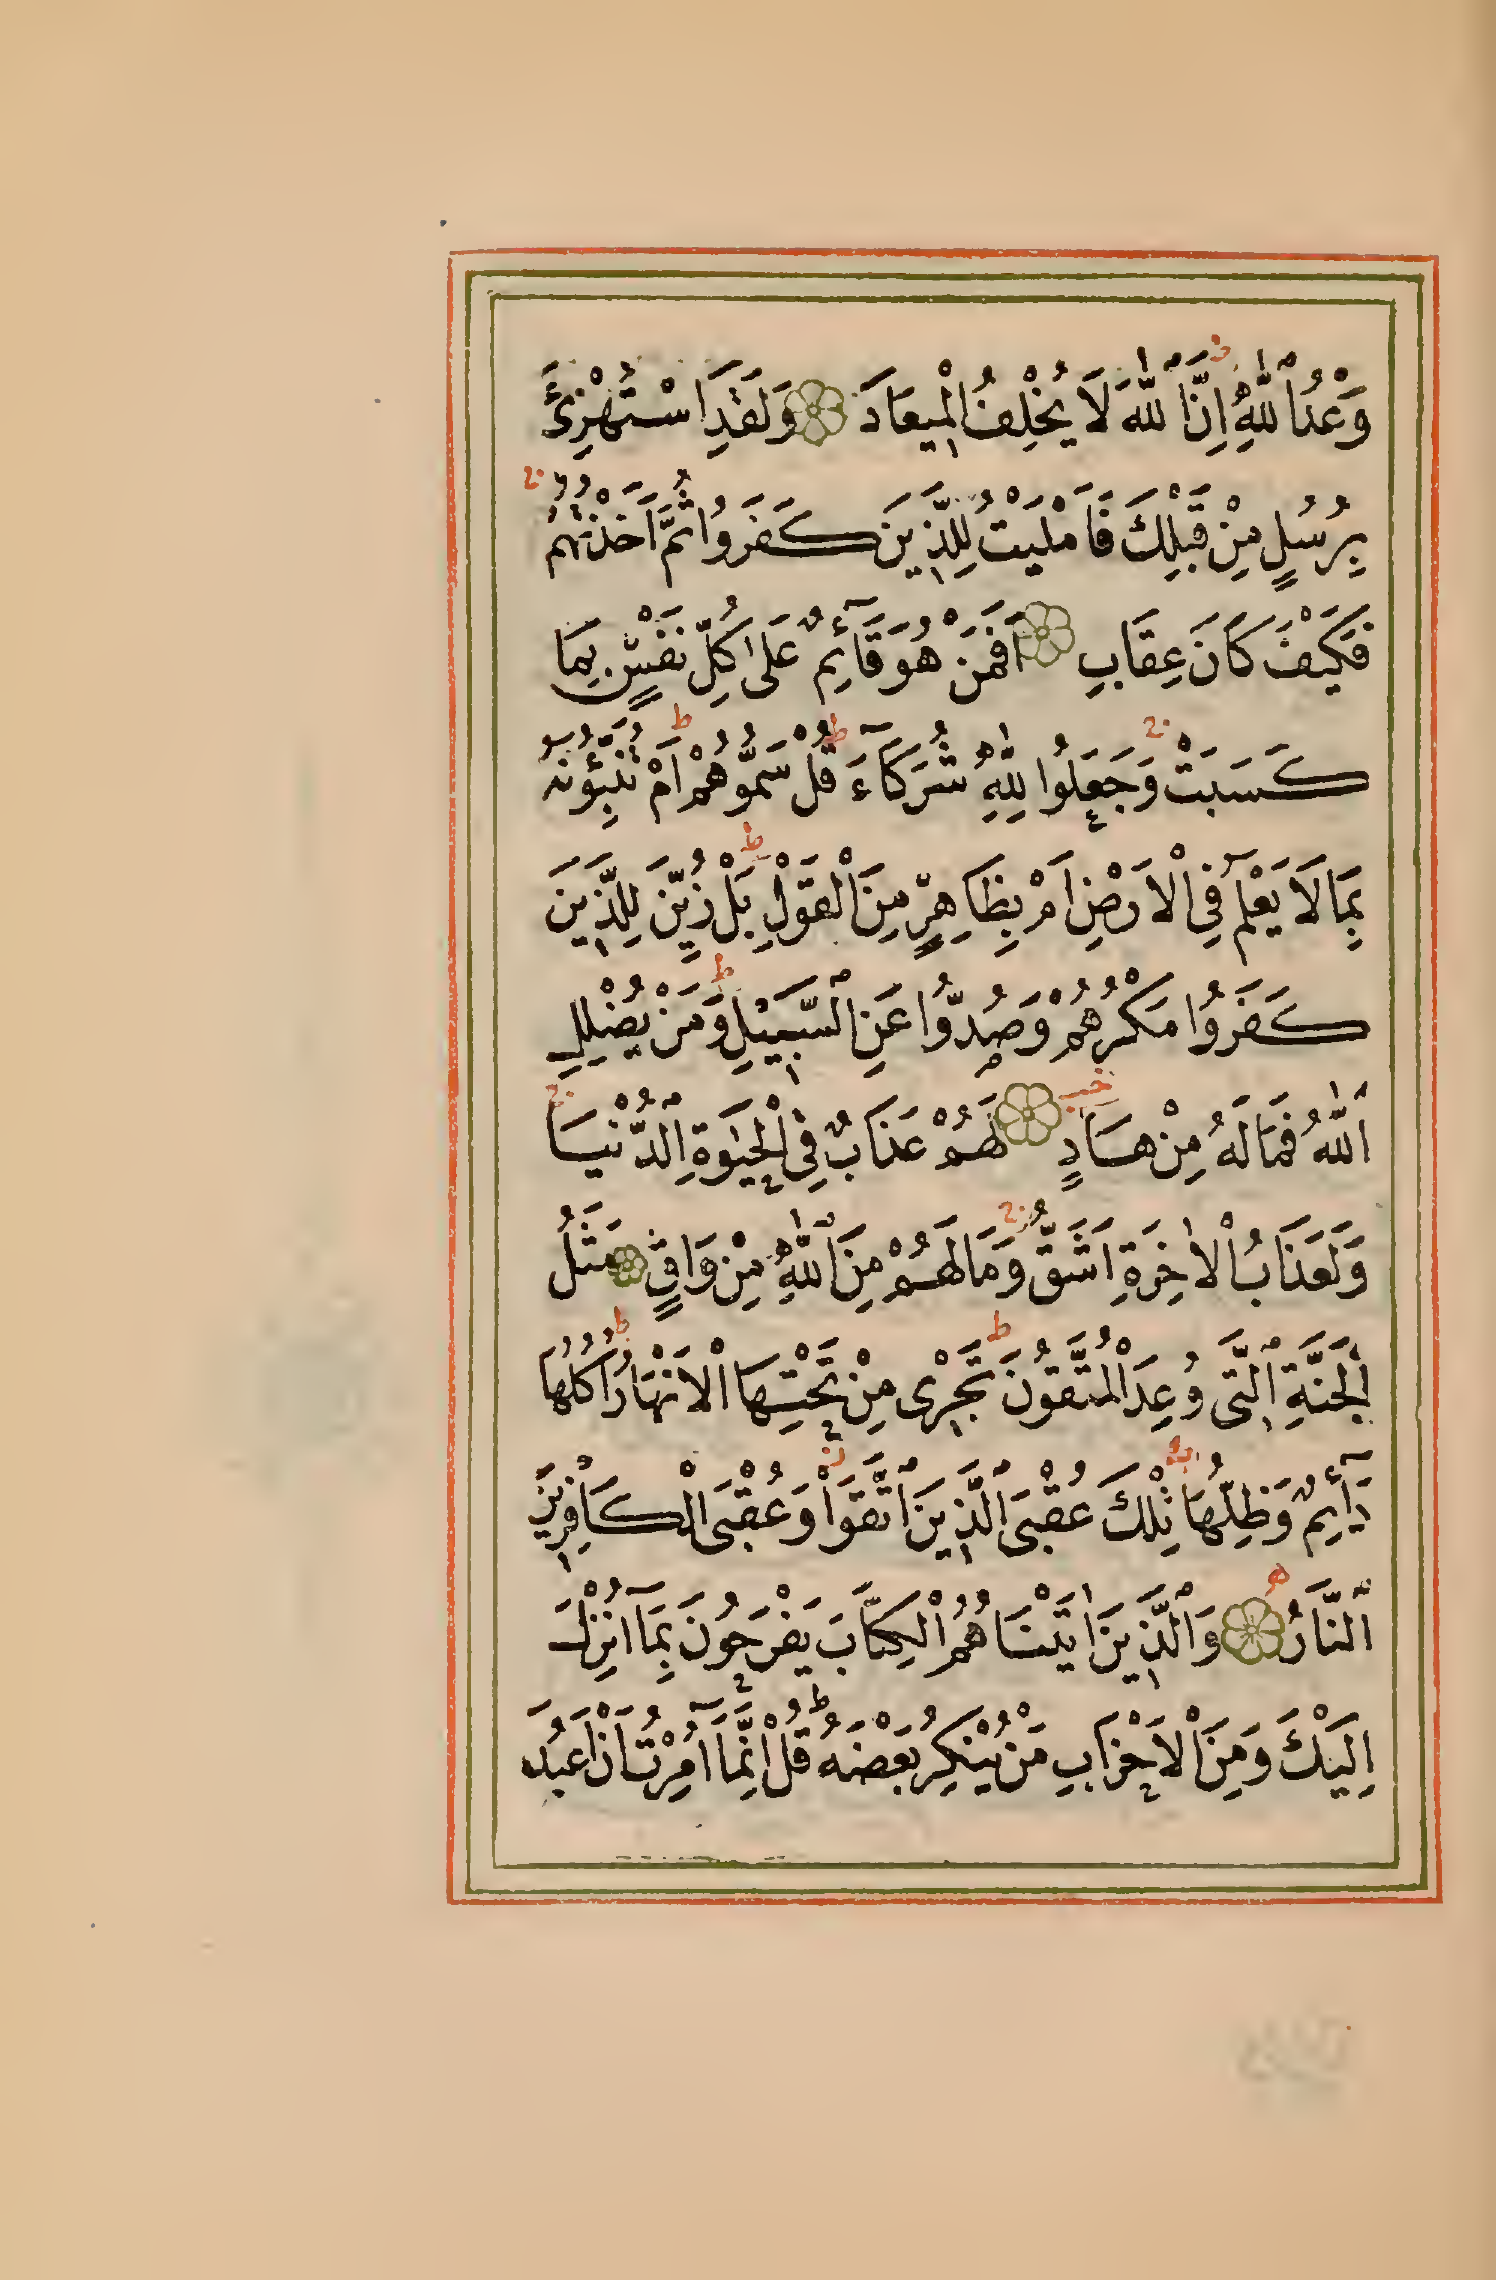 وَعْدُ ٱللّٰهِ اِنَّ ٱللّٰهَ لَا يُخْلِفُ الْمِيعَادَ وَلَقَدِ اسْتُهْزِئَ
بِرُسُلٍ مِنْ قَبْلِكَ فَاَمْلَيْتُ لِلَّذِينَ كَفَرُوا ثُمَّ اَخَذْتُهُمْ
فَكَيْفَ كَانَ عِقَابِ اَفَمَنْ هُوَ قَآئِمٌ عَلٰى كُلِّ نَفْسٍ بِمَا
كَسَبَتْ وَجَعَلُوا لِلّٰهِ شُرَكَآءَ قُلْ سَمُّوهُمْ اَمْ تُنَبِّؤُنَهُ
بِمَا لَا يَعْلَمُ فِى الْاَرْضِ اَمْ بِظَاهِرٍ مِنَ الْقَوْلِ بَلْ زُيِّنَ لِلَّذِينَ
كَفَرُوا مَكْرُهُمْ وَصُدُّوا عَنِ ٱلسَّبِيْلِ وَمَنْ يُضْلِلِ
ٱللّٰهُ فَمَا لَهُ مِنْ هَادٍ لَهُمْ عَذَابٌ فِى الْحَيٰوةِ ٱلدُّنْيَا
وَلَعَذَابُ الْاٰخِرَةِ اَشَقُّ وَمَا لَهُمْ مِنَ ٱللّٰهِ مِنْ وَاقٍ مَثَلُ
الْجَنَّةِ ٱلَّتِى وُعِدَ الْمُتَّقُونَ تَجْرِى مِنْ تَحْتِهَا الْاَنْهَارُ اُكُلُهَا
دَآئِمٌ وَظِلُّهَا تِلْكَ عُقْبَى ٱلَّذِينَ ٱتَّقَوْا وَعُقْبَى الْكَافِرِينَ
ٱلنَّارُ وَٱلَّذِينَ اٰتَيْنَاهُمُ الْكِتَابَ يَفْرَحُونَ بِمَآ اُنْزِلَ
اِلَيْكَ وَمِنَ الْاَحْزَابِ مَنْ يُنْكِرُ بَعْضَهُ قُلْ اِنَّمَآ اُمِرْتُ اَنْ اَعْبُدَ